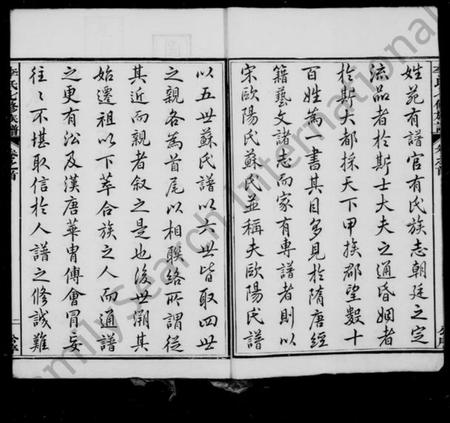 姓苑有譜官有氏族志朝廷之定
流品者於斯士大夫之通昏姻者
於斯大都採天下甲族郡望數十
百姓為一書其目多見於隋唐經
籍藝文諸志而家有專譜者則以
宋歐陽氏蘇氏並稱夫歐陽氏譜
以五世蘇氏譜以六世皆取四世
之親各為首尾以相聯絡所謂從
其近而親者叙之是也後世溯其
始遷祖以下萃合族之人而通譜
之更有沿及漢唐華胄傅會冒妄
往〻不堪取信於人譜之修誠難
李氏 修族譜
卷之首
FamilySearch International